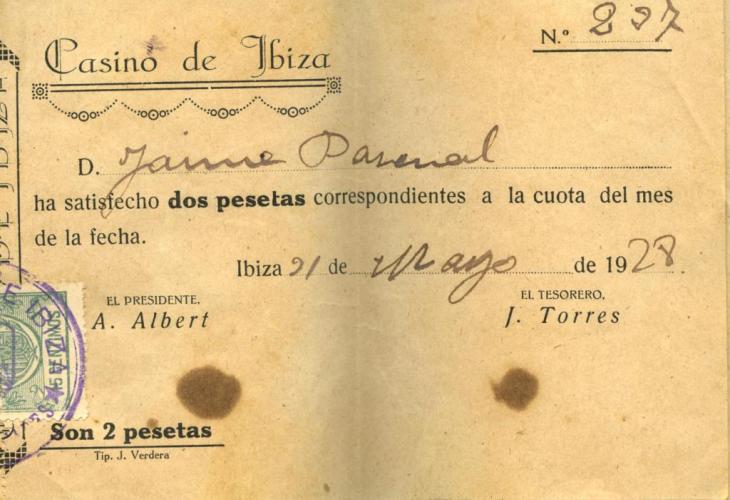 N.º 297
Casino de Ibiza
D. Jaime Pascual
ha satisfecho dos pesetas correspondientes a la cuota del mes
de la fecha.
Ibiza 31 de Mayo de 1928.
EL PRESIDENTE,
A. Albert
EL TESORERO,
J. Torres
15 CENTIMOS
Son 2 pesetas
Tip. J. Verdera